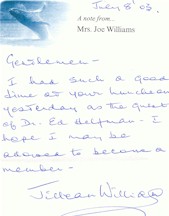 July 8' 03.
A note from...
Mrs. Joe Williams
Gentlemen -
I had such a good
time at your luncheon
yesterday as the guest
of Dr. Ed Helfman - I
hope I may be
allowed to become a
member -
Williams